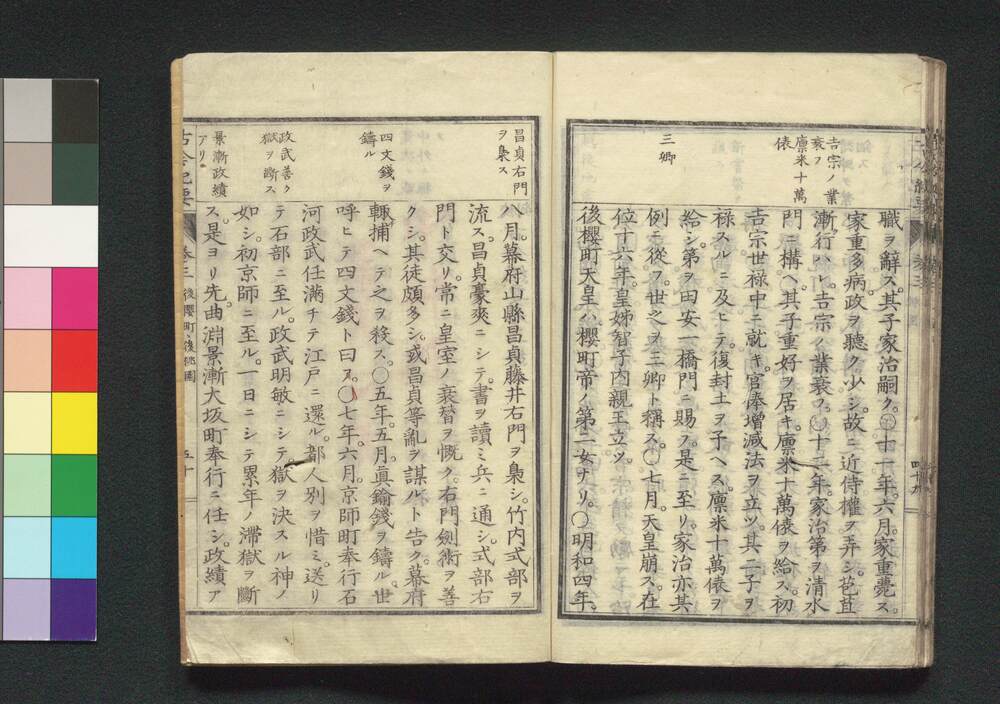 吉宗ノ業
衰フ
廩米十萬
俵
三卿
職ヲ辭ス。其子家治嗣ク。〇十一年。六月。家重薨ス。
家重多病。政ヲ聽ク少シ。故ニ近侍權ヲ弄シ。苞苴
漸行ハレ。吉宗ノ業衰フ。〇十二年。家治第ヲ清水
門ニ構ヘ。其子重好ヲ居キ。廩米十萬俵ヲ給ス。初
吉宗世祿中ニ就キ。官俸增減法ヲ立ツ。其二子ヲ
祿スルニ及ヒテ。復封土ヲ予ヘス。廩米十萬俵ヲ
給シ。第ヲ田安一橋門ニ賜フ。是ニ至リ。家治亦其
例ニ從フ。世之ヲ三卿ト稱ス。〇七月。天皇崩ス。在
位十六年。皇姊智子內親王立ツ。
後櫻町天皇ハ櫻町帝ノ第二女ナリ。〇明和四年。
四十九
昌貞右門
ヲ梟ス
四文錢ヲ
鑄ル
政武善ク
獄ヲ斷ス
景漸政績
アリ
八月。幕府山縣昌貞藤井右門ヲ梟シ。竹內式部ヲ
流ス。昌貞豪爽ニシテ。書ヲ讀ミ兵ニ通シ。式部右
門ト交リ。常ニ皇室ノ衰替ヲ慨ク。右門劍術ヲ善
クシ。其徒頗多シ。或昌貞等亂ヲ謀ルト告ク。幕府
輙捕ヘテ之ヲ殺ス。〇五年。五月。眞鍮錢ヲ鑄ル。世
呼ヒテ四文錢ト曰フ。〇七年。六月。京師町奉行石
河政武任滿チテ江戶ニ還ル。都人別ヲ惜ミ。送リ
テ石部ニ至ル。政武明敏ニシテ。獄ヲ決スル神ノ
如シ。初京師ニ至ル。一日ニシテ累年ノ滯獄ヲ斷
ス。是ヨリ先。曲淵景漸大坂町奉行ニ任シ。政績ア
古今紀要
卷三
後櫻町、後桃園
五十